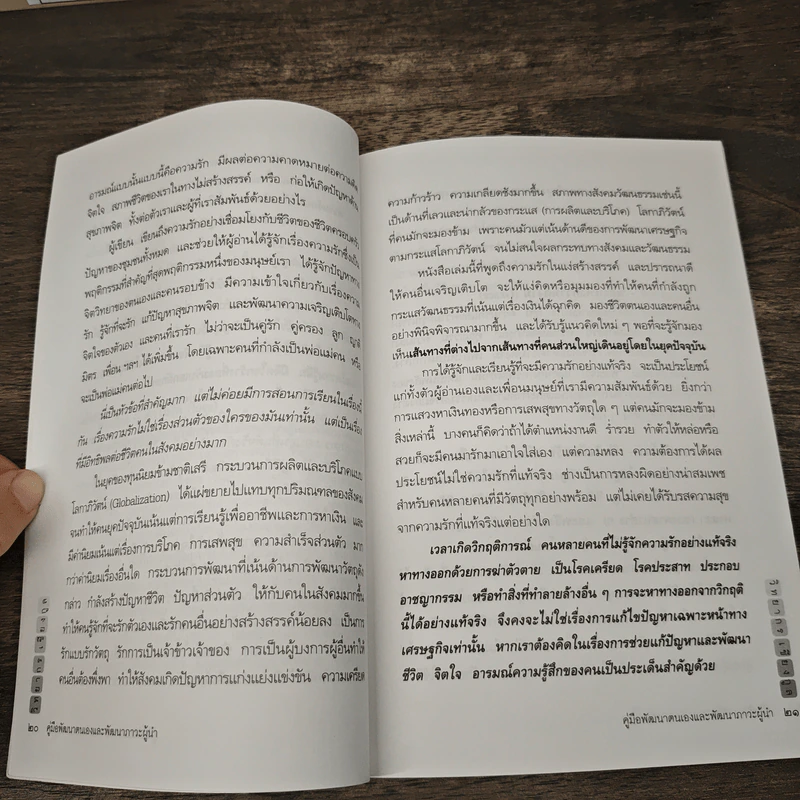 อารมณ์แบบนั้นแบบนี้คือความรัก มีผลต่อความคาดหมายต่อความคิด
จิตใจ สภาพชีวิตของเราในทางไม่สร้างสรรค์ หรือ ก่อให้เกิดปัญหาด้าน
สุขภาพจิต ทั้งต่อตัวเราและผู้ที่เราสัมพันธ์ด้วยอย่างไร
ผู้เขียน เขียนถึงความรักอย่างเชื่อมโยงกับชีวิตของชีวิตครอบครัว
ปัญหาของชุมชนทั้งหมด และช่วยให้ผู้อ่านได้รู้จักเรื่องความรักซึ่งเป็น
พฤติกรรมที่สำคัญที่สุดพฤติกรรมหนึ่งของมนุษย์เรา ได้รู้จักปัญหาทาง
จิตวิทยาของตนเองและคนรอบข้าง มีความเข้าใจเกี่ยวกับเรื่องความ
รัก รู้จักที่จะรัก แก้ปัญหาสุขภาพจิต และพัฒนาความเจริญเติบโตทาง
จิตใจของตัวเอง และคนที่เรารัก ไม่ว่าจะเป็นคู่รัก คู่ครอง ลูก ญาติ
มิตร เพื่อน ฯลฯ ได้เพิ่มขึ้น โดยเฉพาะคนที่กำลังเป็นพ่อแม่คน หรือ
จะเป็นพ่อแม่คนต่อไป
นี่เป็นหัวข้อที่สำคัญมาก แต่ไม่ค่อยมีการสอนการเรียนในเรื่องนี้
กัน เรื่องความรักไม่ใช่เรื่องส่วนตัวของใครของมันเท่านั้น แต่เป็นเรื่อง
ที่มีอิทธิพลต่อชีวิตคนในสังคมอย่างมาก
ในยุคของทุนนิยมข้ามชาติเสรี กระบวนการผลิตและบริโภคแบบ
โลกาภิวัตน์ (Globalization) ได้แผ่ขยายไปแทบทุกปริมณฑลของสังคม
จนทำให้คนยุคปัจจุบันเน้นแต่การเรียนรู้เพื่ออาชีพและการหาเงิน และ
มีค่านิยมเน้นแต่เรื่องการบริโภค การเสพสุข ความสำเร็จส่วนตัว มาก
กว่าค่านิยมเรื่องอื่นใด กระบวนการพัฒนาที่เน้นด้านการพัฒนาวัตถุดัง
กล่าว กำลังสร้างปัญหาชีวิต ปัญหาส่วนตัว ให้กับคนในสังคมมากขึ้น
ทำให้คนรู้จักที่จะรักตัวเองและรักคนอื่นอย่างสร้างสรรค์น้อยลง เป็นการ
รักแบบรักวัตถุ รักการเป็นเจ้าข้าวเจ้าของ การเป็นผู้บงการผู้อื่นทำให้
คนอื่นต้องพึ่งพา ทำให้สังคมเกิดปัญหาการแก่งแย่งแข่งขัน ความเครียด
๒๐ คู่มือพัฒนาตนเองและพัฒนาภาวะผู้นำ
ความก้าวร้าว ความเกลียดชังมากขึ้น สภาพทางสังคมวัฒนธรรมเช่นนี้
เป็นด้านที่เลวและน่ากลัวของกระแส (การผลิตและบริโภค) โลกาภิวัตน์
ที่คนมักจะมองข้าม เพราะคนมัวแต่เน้นด้านดีของการพัฒนาเศรษฐกิจ
ตามกระแสโลกาภิวัตน์ จนไม่สนใจผลกระทบทางสังคมและวัฒนธรรม
หนังสือเล่มนี้ที่พูดถึงความรักในแง่สร้างสรรค์ และปรารถนาดี
ให้คนอื่นเจริญเติบโต จะให้แง่คิดหรือมุมมองที่ทำให้คนที่กำลังถูก
กระแสวัฒนธรรมที่เน้นแต่เรื่องเงินได้ฉุกคิด มองชีวิตตนเองและคนอื่น
อย่างพินิจพิจารณามากขึ้น และได้รับรู้แนวคิดใหม่ ๆ พอที่จะรู้จักมอง
เห็นเส้นทางที่ต่างไปจากเส้นทางที่คนส่วนใหญ่เดินอยู่โดยในยุคปัจจุบัน
การได้รู้จักและเรียนรู้ที่จะมีความรักอย่างแท้จริง จะเป็นประโยชน์
แก่ทั้งตัวผู้อ่านเองและเพื่อนมนุษย์ที่เรามีความสัมพันธ์ด้วย ยิ่งกว่า
การแสวงหาเงินทองหรือการเสพสุขทางวัตถุใด ๆ แต่คนมักจะมองข้าม
สิ่งเหล่านี้ บางคนก็คิดว่าถ้าได้ตำแหน่งงานดี ร่ำรวย ทำตัวให้หล่อหรือ
สวยก็จะมีคนมารักมาเอาใจใส่เอง แต่ความหลง ความต้องการได้ผล
ประโยชน์ไม่ใช่ความรักที่แท้จริง ช่างเป็นการหลงผิดอย่างน่าสมเพช
สำหรับคนหลายคนที่มีวัตถุทุกอย่างพร้อม แต่ไม่เคยได้รับรสความสุข
จากความรักที่แท้จริงแต่อย่างใด
เวลาเกิดวิกฤติการณ์ คนหลายคนที่ไม่รู้จักความรักอย่างแท้จริง
หาทางออกด้วยการฆ่าตัวตาย เป็นโรคเครียด โรคประสาท ประกอบ
อาชญากรรม หรือทำสิ่งที่ทำลายล้างอื่น ๆ การจะหาทางออกจากวิกฤติ
นี้ได้อย่างแท้จริง จึงคงจะไม่ใช่เรื่องการแก้ไขปัญหาเฉพาะหน้าทาง
เศรษฐกิจเท่านั้น หากเราต้องคิดในเรื่องการช่วยแก้ปัญหาและพัฒนา
ชีวิต จิตใจ อารมณ์ความรู้สึกของคนเป็นประเด็นสำคัญด้วย
วิทยากร เชียงกูล
คู่มือพัฒนาตนเองและพัฒนาภาวะผู้นำ ๒๑